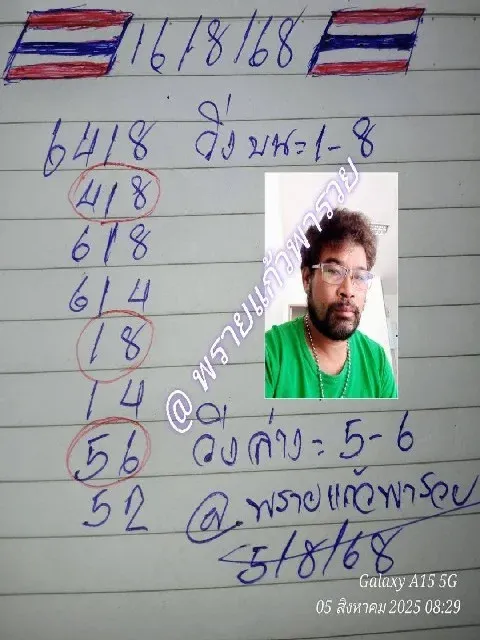 16/8/68
6418 วิ่งบน=1-8
418
618
614
18
14
56 วิ่งล่าง=5-6
52 @.พรายแก้วพารวย
5/8/68
@ พรายแก้วพารวย
Galaxy A15 5G
05 สิงหาคม 2025 08:29